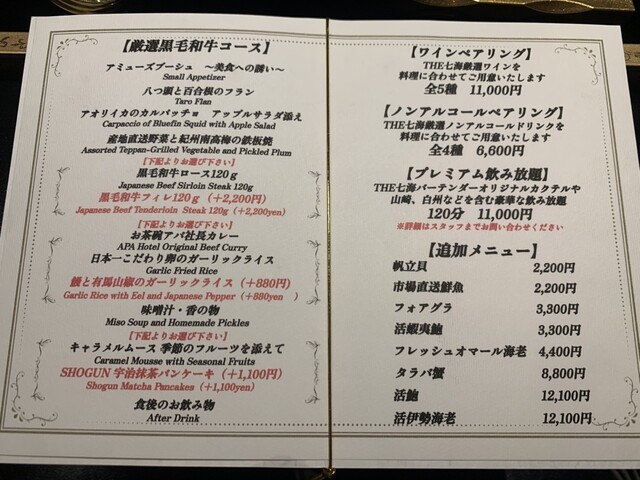 【厳選黒毛和牛コース】
アミューズブーシュ　～美食への誘い～
Small Appetizer
八つ頭と百合根のフラン
Taro Flan
アオリイカのカルパッチョ　アップルサラダ添え
Carpaccio of Bluefin Squid with Apple Salad
産地直送野菜と紀州南高梅の鉄板焼
Assorted Teppan-Grilled Vegetable and Pickled Plum
【下記よりお選び下さい】
黒毛和牛ロース120ｇ
Japanese Beef Sirloin Steak 120g
黒毛和牛フィレ120ｇ（＋2,200円）
Japanese Beef Tenderloin Steak 120g (+2,200yen)
【下記よりお選び下さい】
お茶碗アパ社長カレー
APA Hotel Original Beef Curry
日本一こだわり卵のガーリックライス
Garlic Fried Rice
鰻と有馬山椒のガーリックライス（＋880円）
Garlic Rice with Eel and Japanese Pepper (+880yen )
味噌汁・香の物
Miso Soup and Homemade Pickles
【下記よりお選び下さい】
キャラメルムース 季節のフルーツを添えて
Caramel Mousse with Seasonal Fruits
SHOGUN 宇治抹茶パンケーキ（＋1,100円）
Shogun Matcha Pancakes (+1,100yen)
食後のお飲み物
After Drink
【ワインペアリング】
THE七海厳選ワインを
料理に合わせてご用意いたします
全5種　11,000円
【ノンアルコールペアリング】
THE七海厳選ノンアルコールドリンクを
料理に合わせてご用意いたします
全4種　6,600円
【プレミアム飲み放題】
THE七海バーテンダーオリジナルカクテルや
山崎、白州などを含む豪華な飲み放題
120分　11,000円
※詳細はスタッフまでお問い合わせください
【追加メニュー】
帆立貝　2,200円
市場直送鮮魚　2,200円
フォアグラ　3,300円
活蝦夷鮑　3,300円
フレッシュオマール海老　4,400円
タラバ蟹　8,800円
活鮑　12,100円
活伊勢海老　12,100円